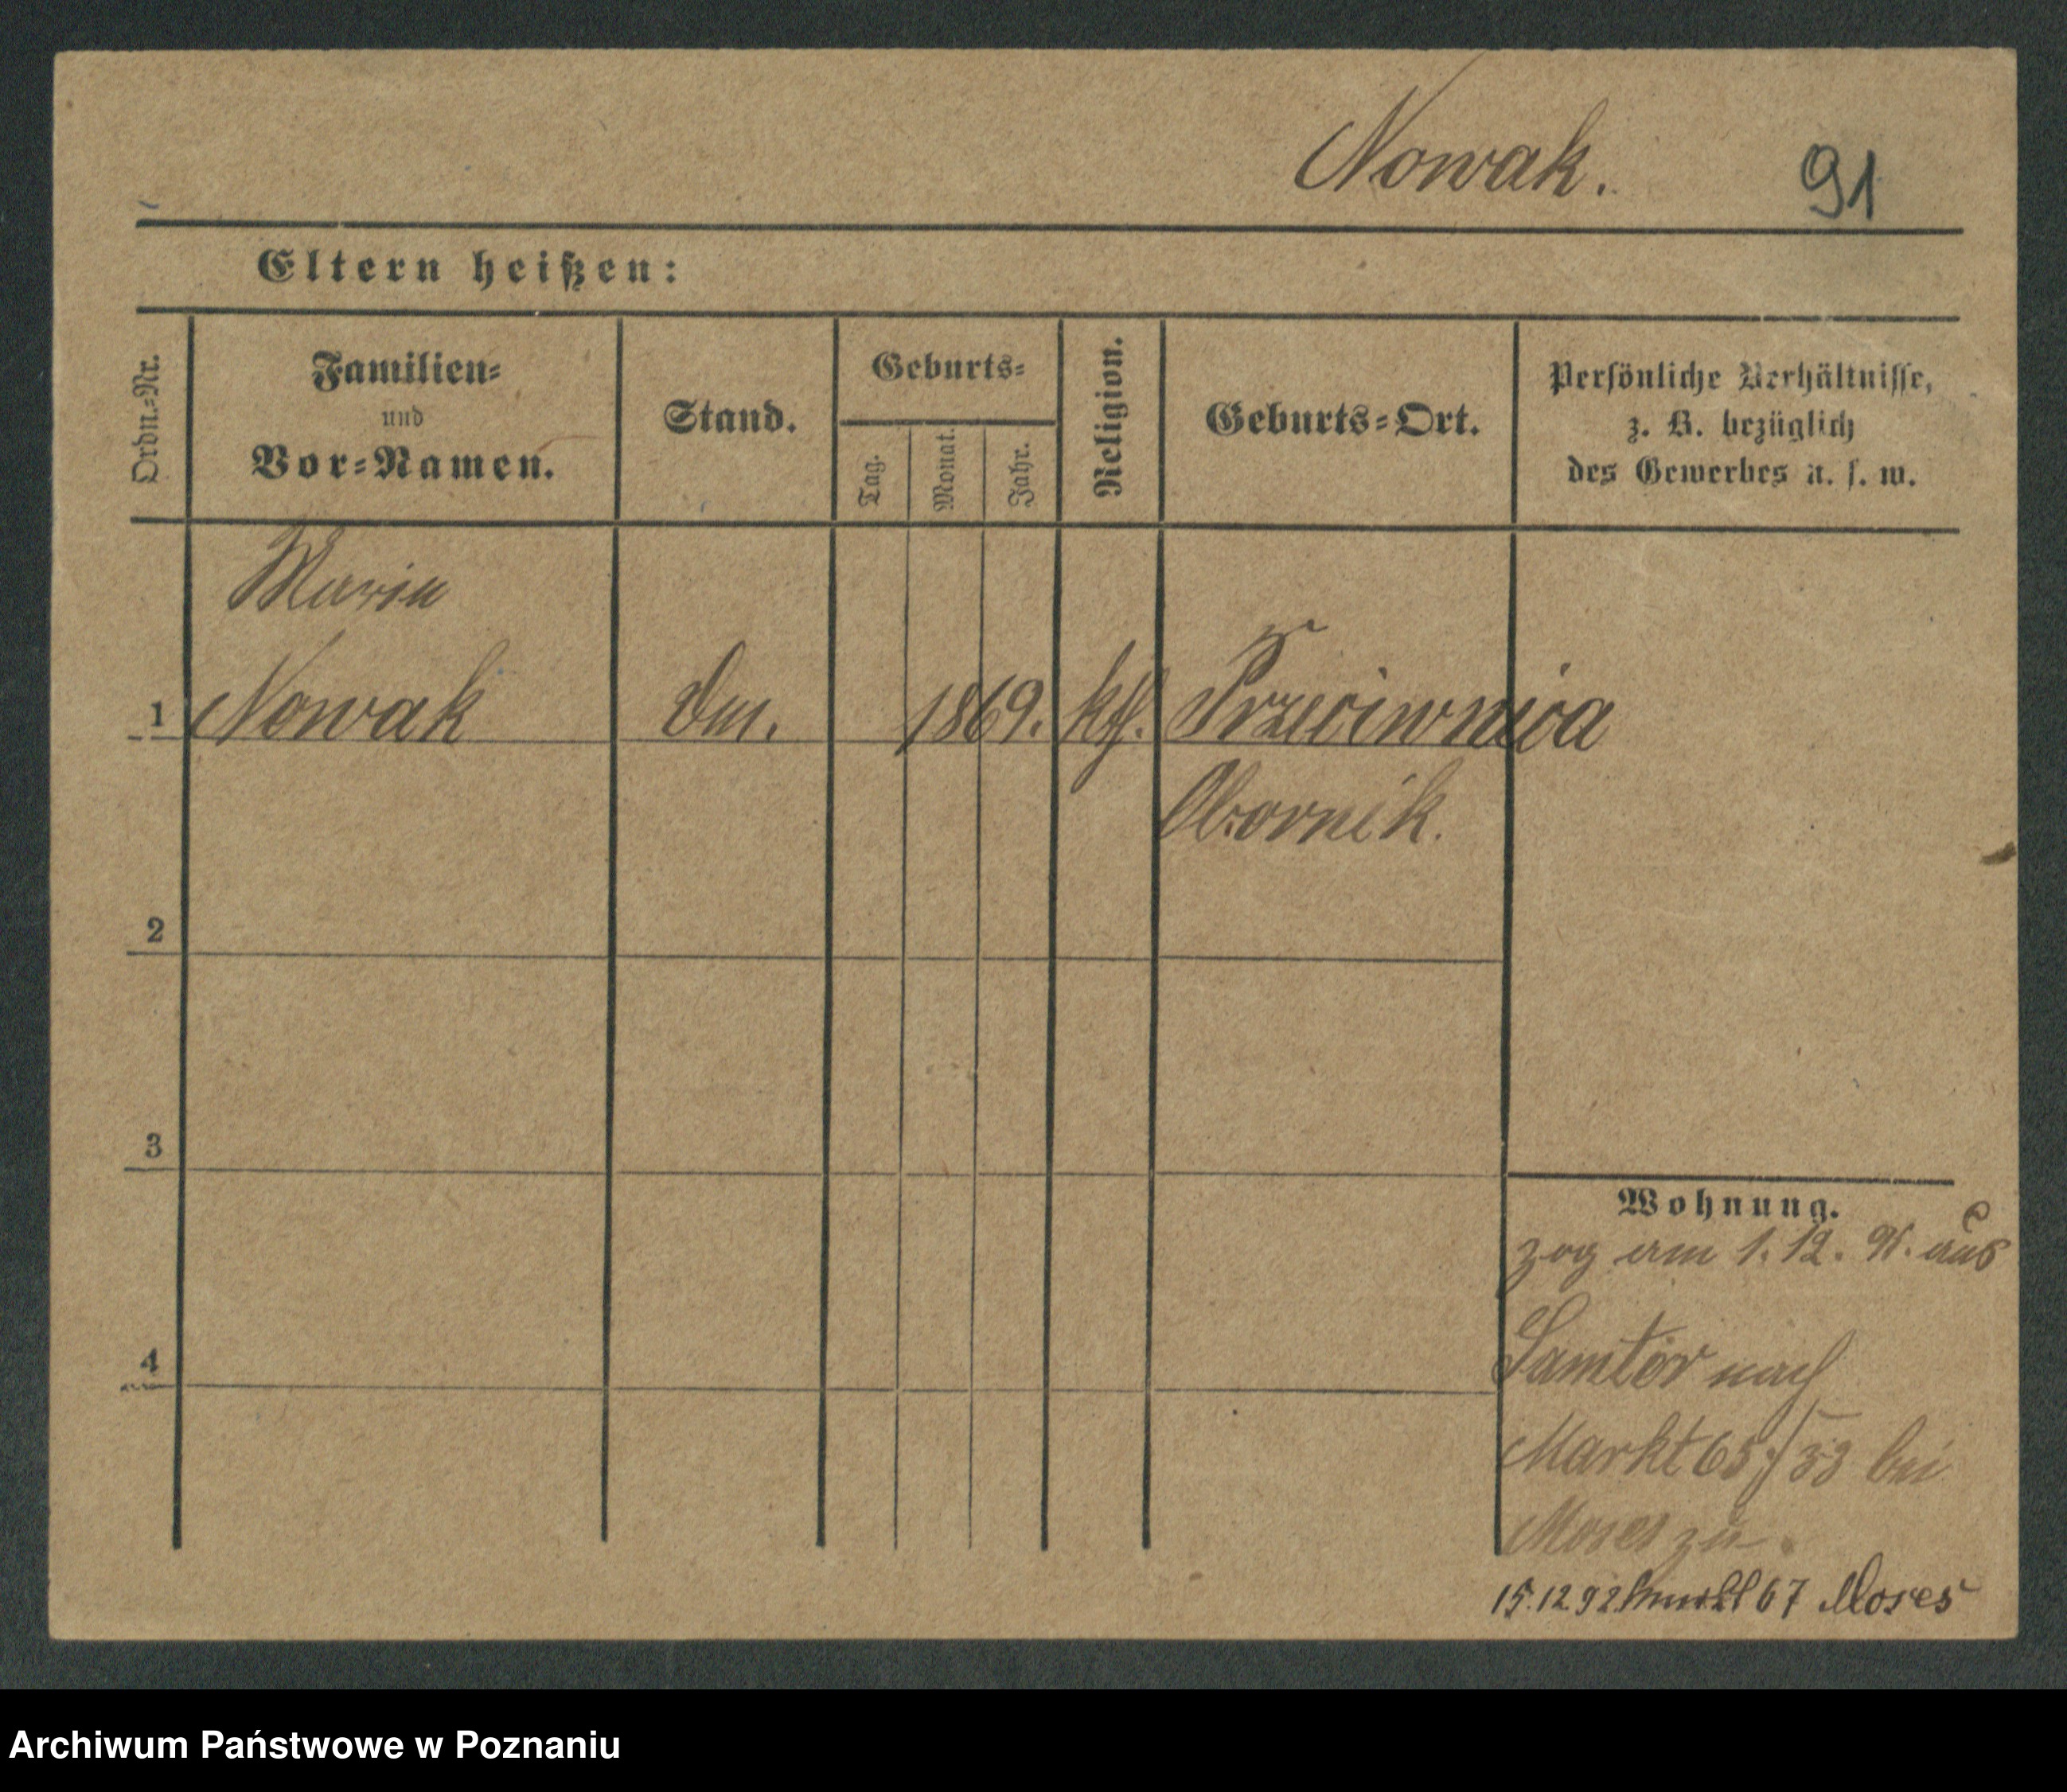 Nowak. 91
Eltern heißen:
Ordn.-Nr.
Familien-
und
Vor-Namen.
Stand.
Geburts-
Tag.
Monat.
Jahr.
Religion.
Geburts-Ort.
Persönliche Verhältnisse,
z. B. bezüglich
des Gewerbes u. s. w.
Maria
1 Nowak 1869. kth. Przeciwnica
Obornik.
2
3
4
Wohnung.
zog am 1. 12. 91. aus
Samter nach
Markt 65/53 bei
Moses zu.
15.12.92 67 Moses
Archiwum Państwowe w Poznaniu